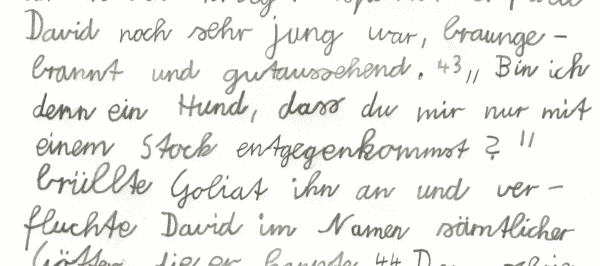 David noch sehr jung war, braunge-
brannt und gutaussehend. 43 "Bin ich
denn ein Hund, dass du mir nur mit
einem Stock entgegenkommst?"
brüllte Goliat ihn an und ver-
fluchte David im Namen sämtlicher
44